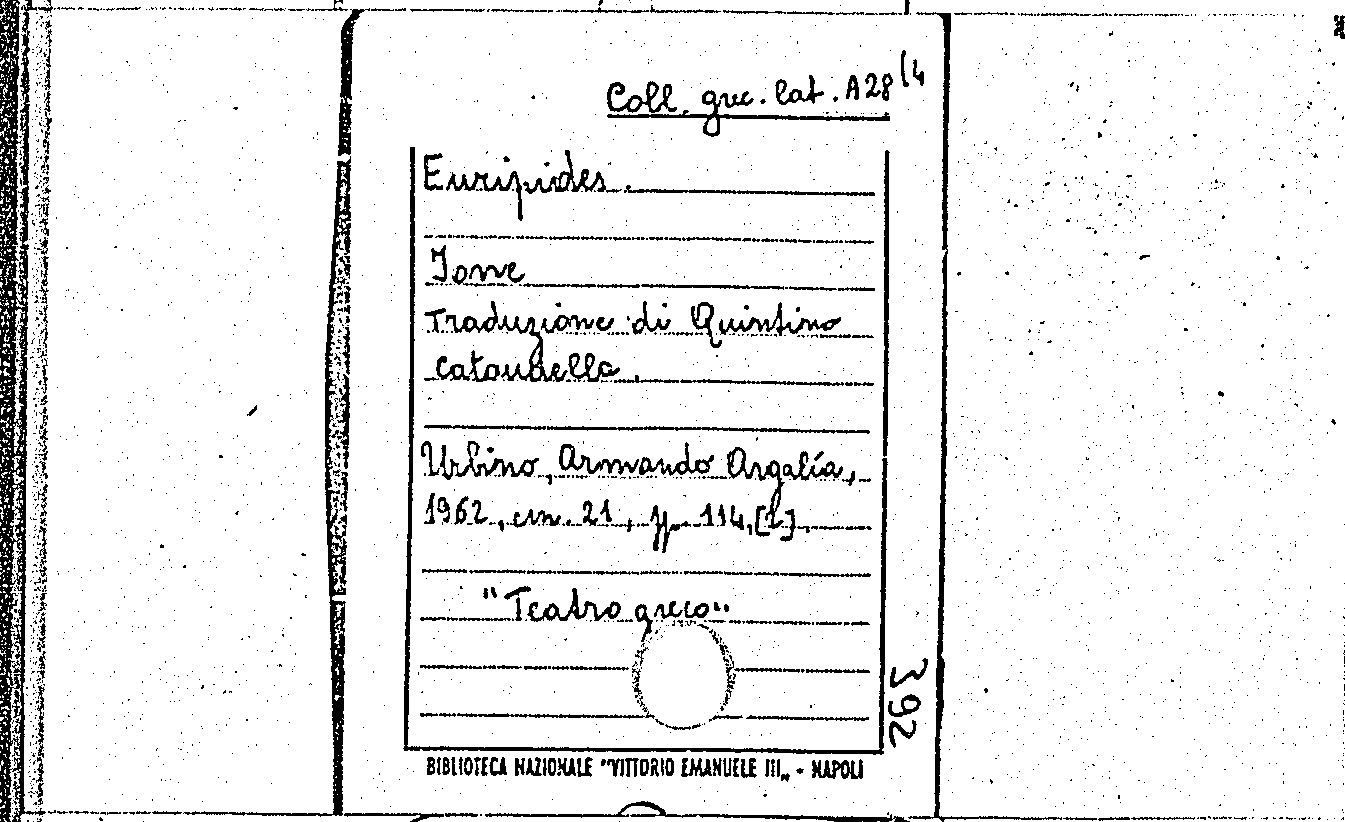 Coll. grec. lat. A28/4
Euripides.
Ione
Traduzione di Quintino
Cataudella.
Urbino, Armando Argalía,
1962, cm. 21, pp. 114, [1].
"Teatro greco"
392
BIBLIOTECA NAZIONALE "VITTORIO EMANUELE III" - NAPOLI